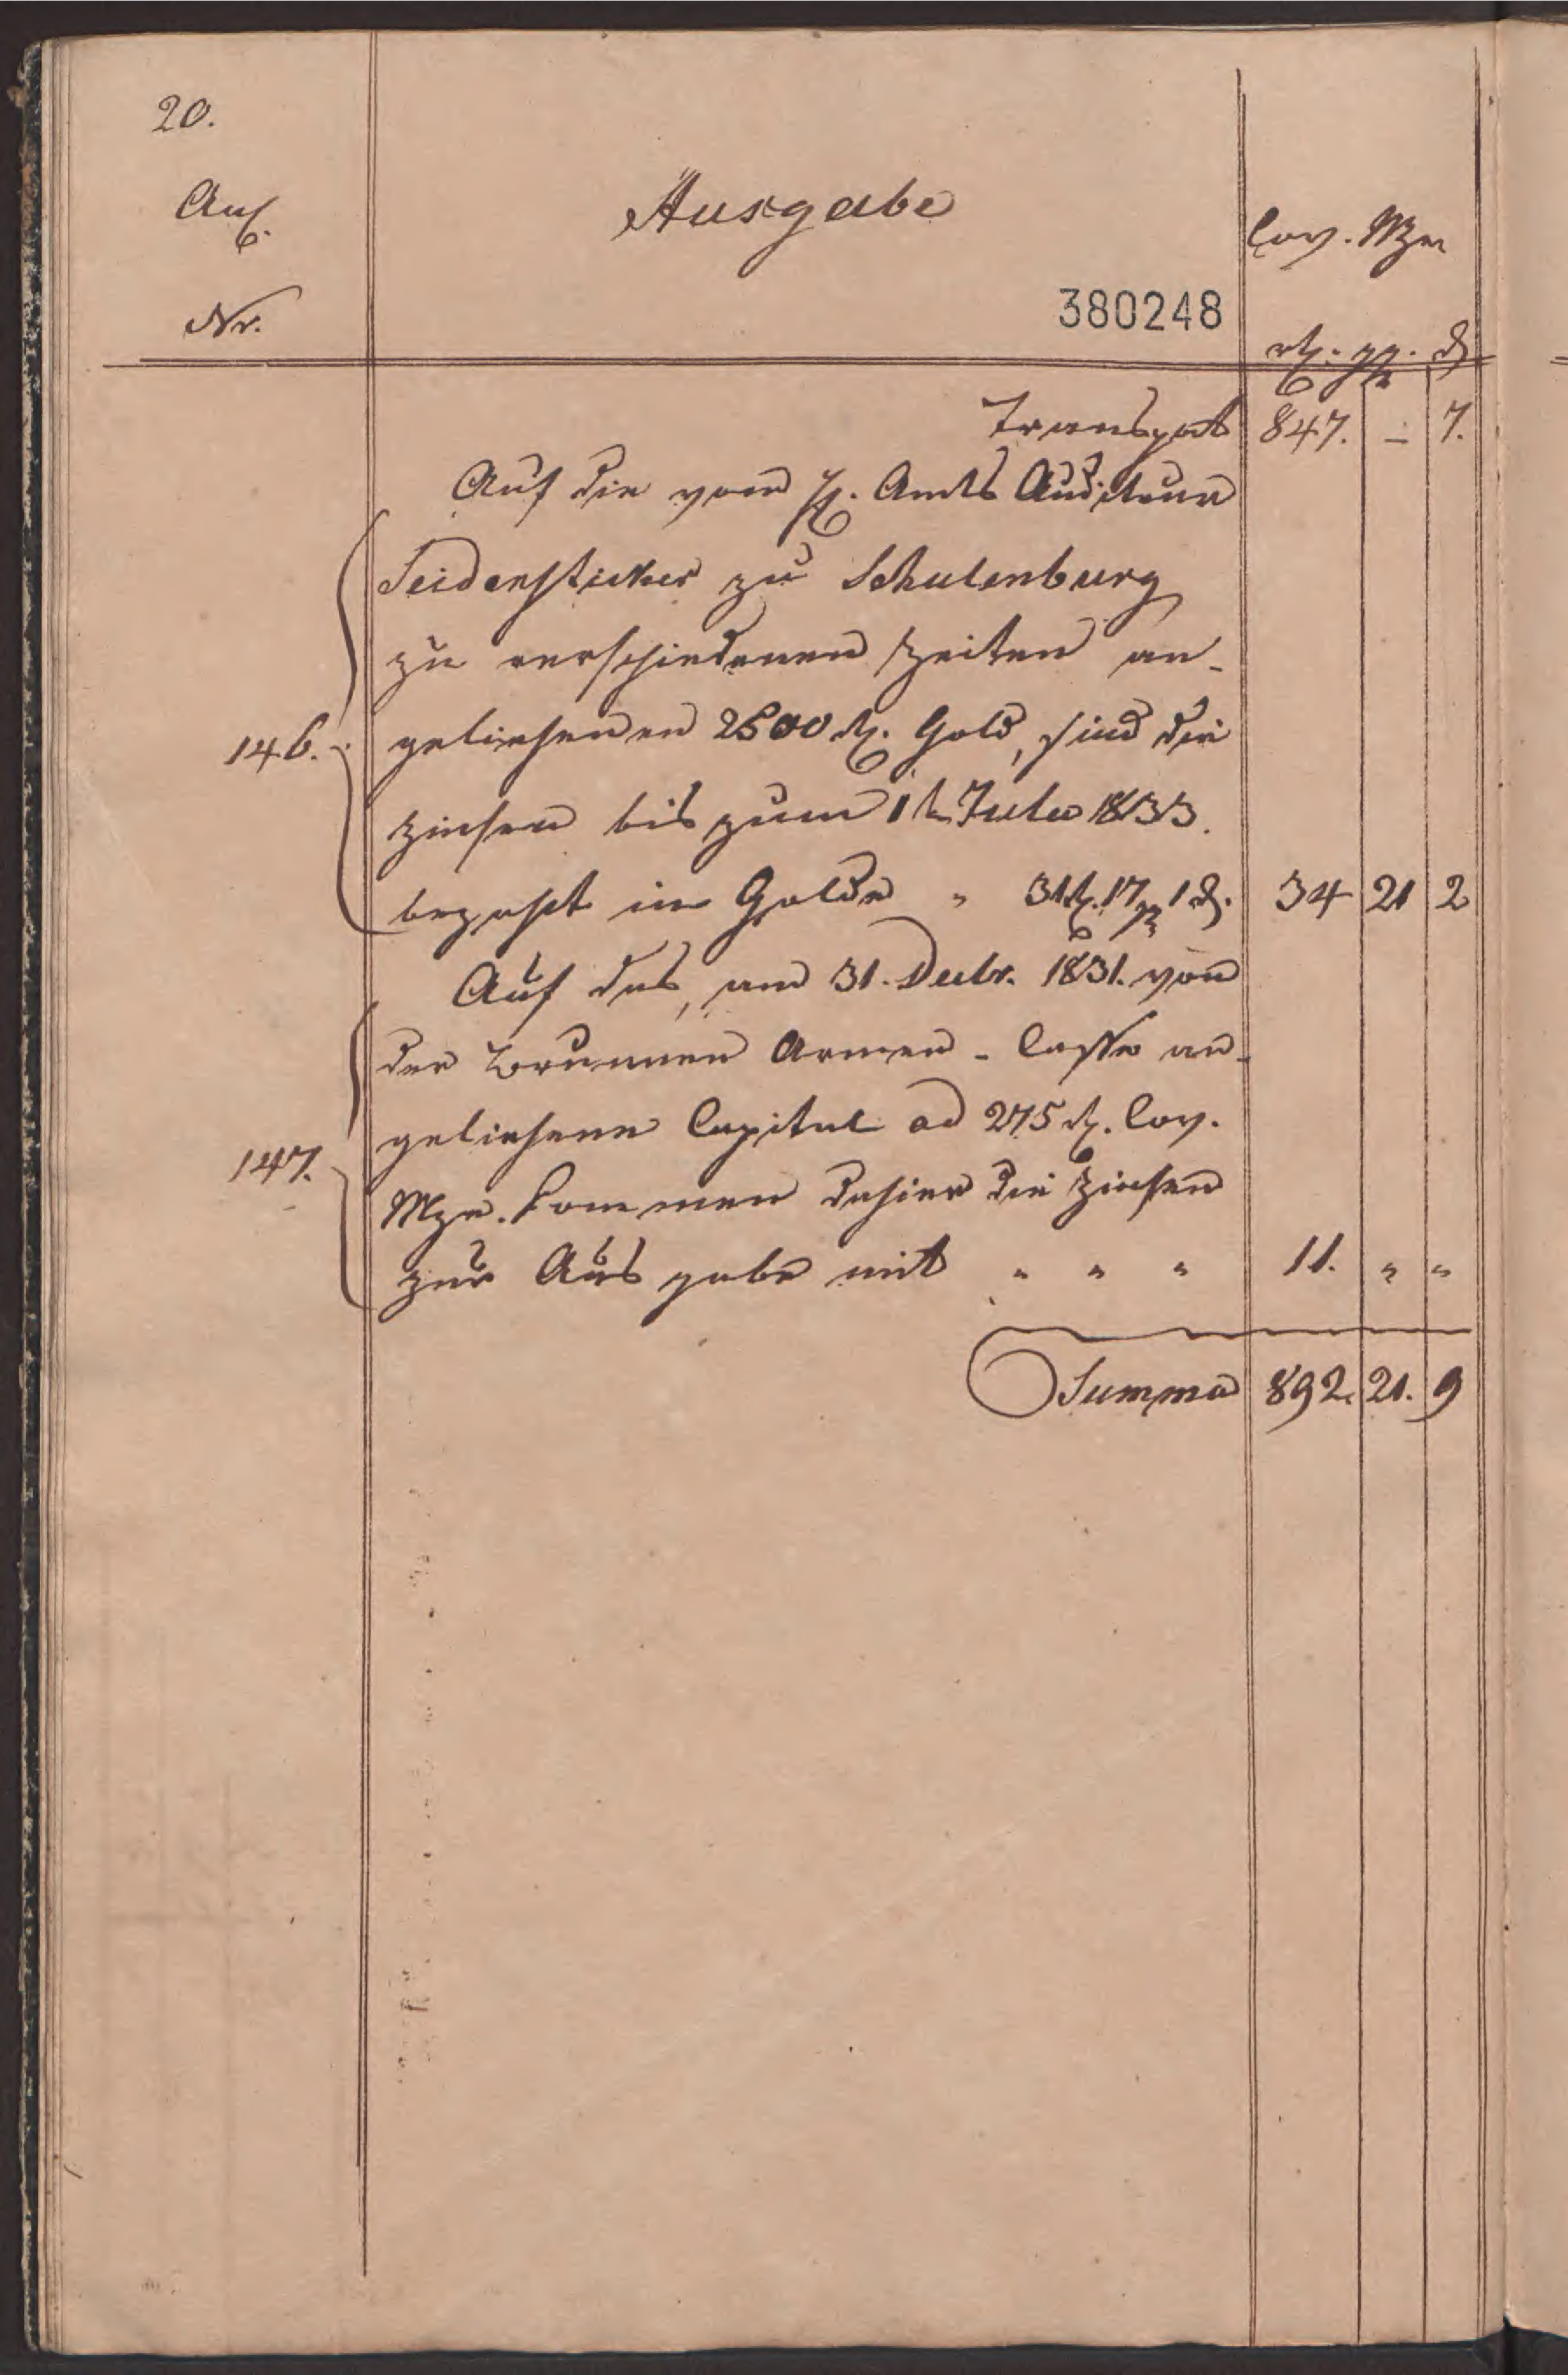 20.
Anl.
Nr.
Ausgabe
Cov. Mze
380248
rt. ggr. d.
Transport 847. – 7.
Auf die vom H. Amts Auditeur
Seidensticker zu Schulenburg
zu verschiedenen Zeiten an-
146. geliehenen 2500 rt. Gold, sind die
Zinsen bis zum 1t July 1833.
bezahlt in Golde " 31 rt. 17 ggr 1 d. 34 21 2
Auf das, am 31. Decbr. 1831. von
der Brunnen Armen-Casse an-
geliehene Capital ad 275 rt. Cov.
147. Mze. kommen dahier die Zinsen
zur Ausgabe mit " " " 11. " "
Summa 892. 21. 9